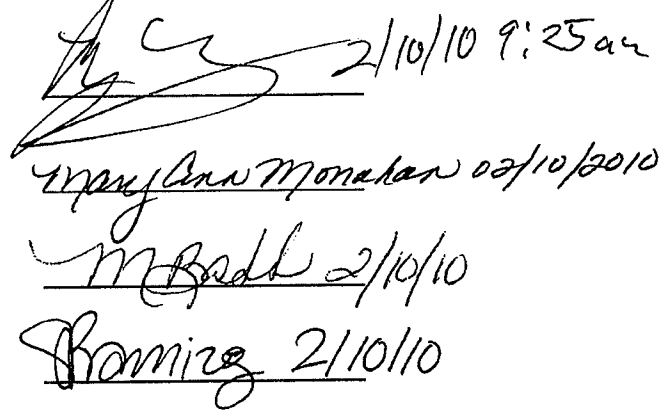 2/10/10 9:25am
Mary Ann Monahan 02/10/2010
2/10/10
Ramirez 2/10/10